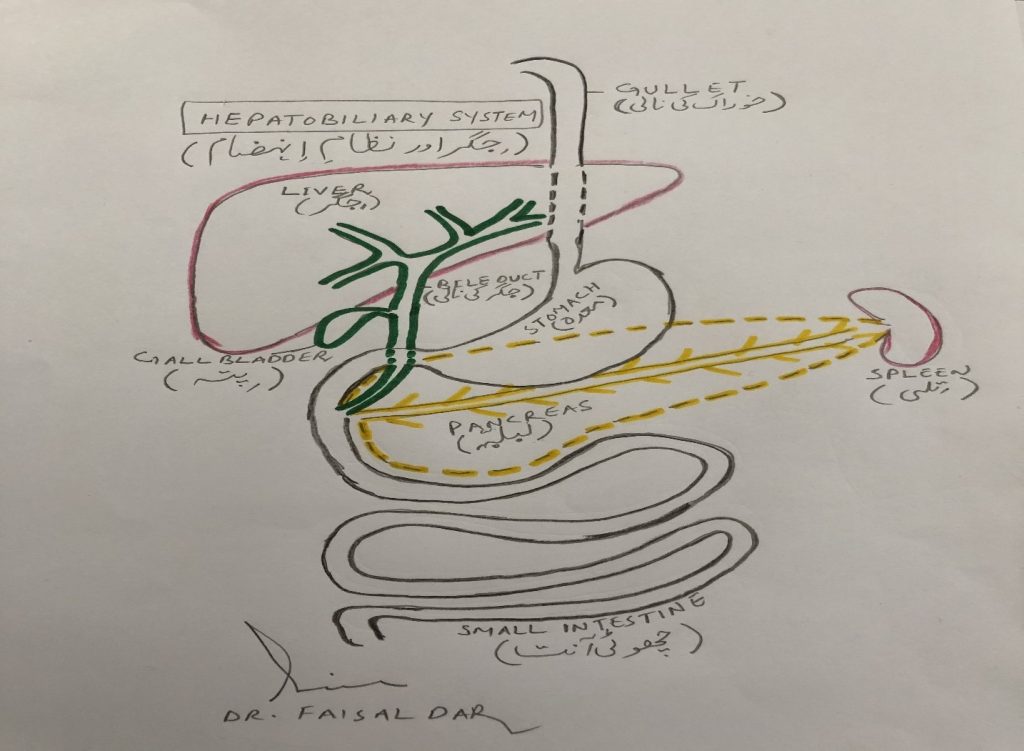 HEPATOBILIARY SYSTEM
(جگر اور نظامِ اِنہضام)
GULLET
(خوراک کی نالی)
LIVER
(جگر)
BILE DUCT
(جگر کی نالی)
STOMACH
(معدہ)
GALL BLADDER
(پِتہ)
SPLEEN
(تِلی)
PANCREAS
(لبلبہ)
SMALL INTESTINE
(چھوٹی آنت)
DR. FAISAL DAR